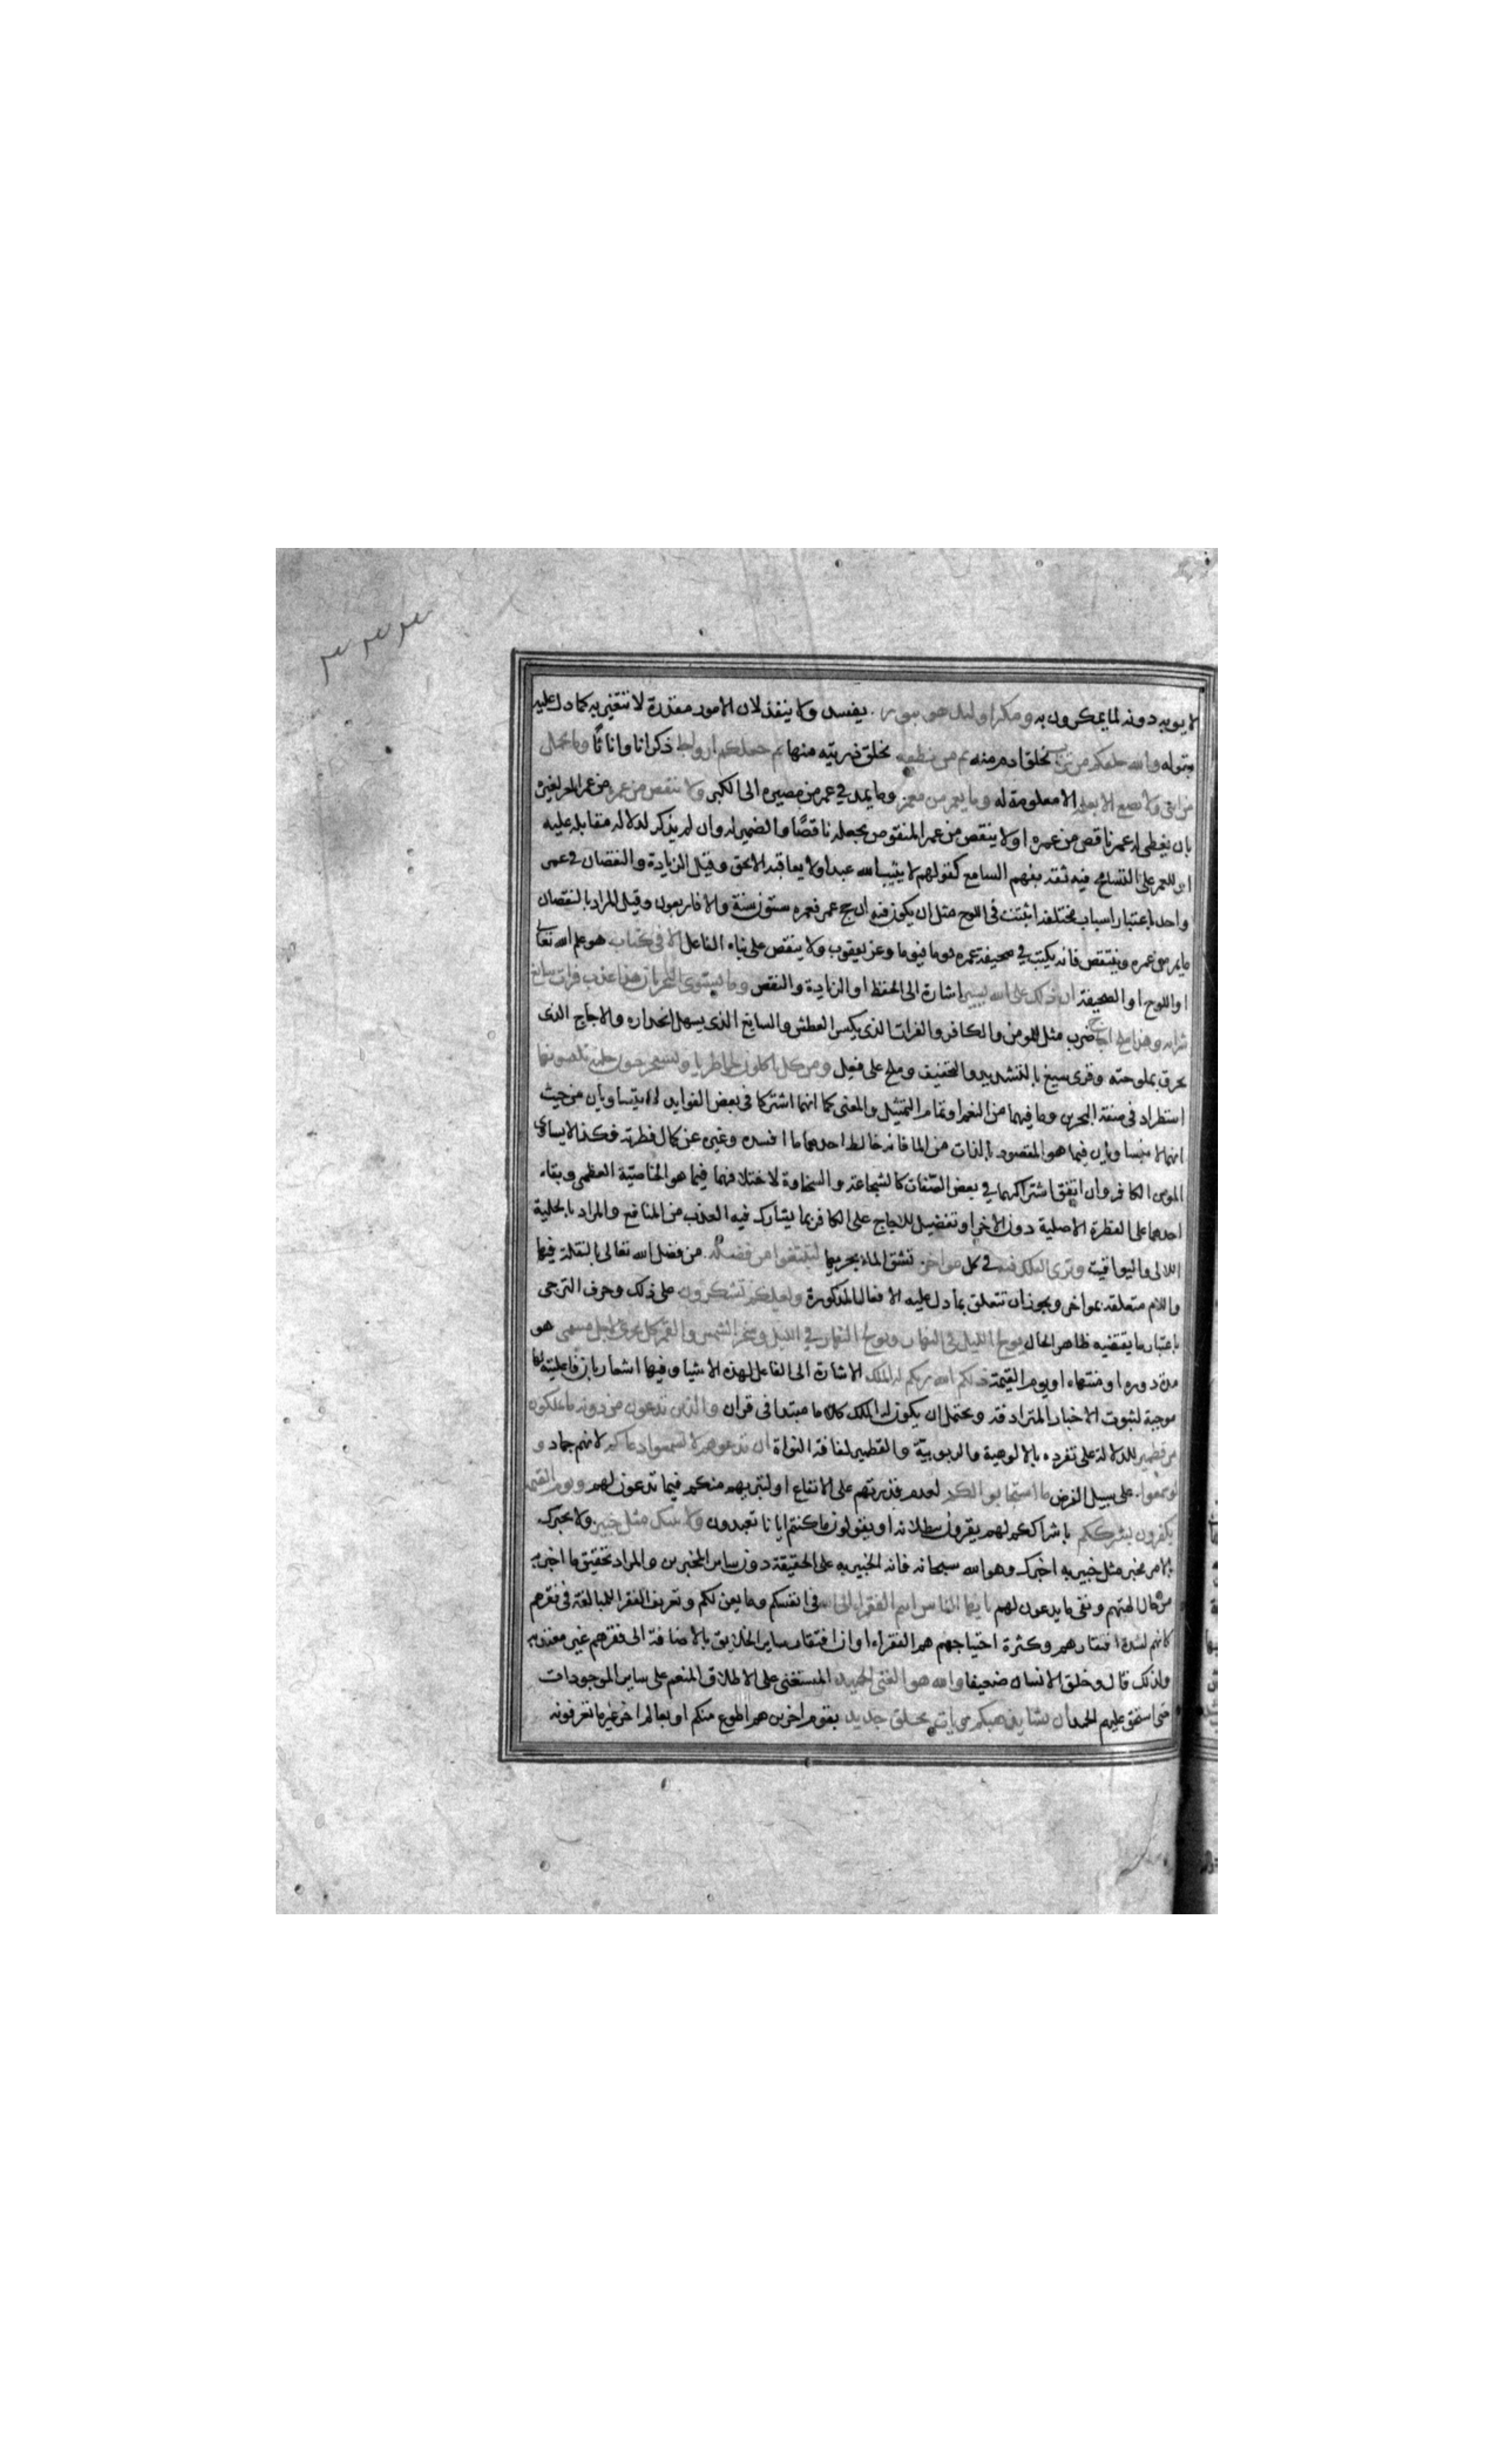 ٣٣٣
لا يوبه دونه لما يمكرون به ومكر اولئك هو يبور يفسد ولا ينفذ لان الامور مقدرة لا تتغير به كما دل عليه
بقوله والله خلقكم من تراب بخلق ادم منه ثم من نطفة بخلق ذريته منها ثم جعلكم ازواجا ذكرانا واناثا وما تحمل
من انثى ولا تضع الا بعلمه الا معلومة له وما يعمر من معمر وما يمد في عمر من مصيره الى الكبر ولا ينقص من عمره من عمر المعمر لغيره
بان يعطى له عمر ناقص من عمره او لا ينقص من عمر المنقوص بجعله ناقصا والضمير له وان لم يذكر لدلالة مقابله عليه
او للمعمر على التسامح فيه ثقة بفهم السامع كقولهم لا يثيب الله عبدا ولا يعاقبه الا بحق وقيل الزيادة والنقصان في عمر
واحد باعتبار اسباب مختلفة اثبتت في اللوح مثل ان يكون فيه ان حج عمر فعمره ستون سنة والا فاربعون وقيل المراد بالنقصان
ما يمر من عمره وينتقص فانه يكتب في صحيفة عمره يوما فيوما وعن يعقوب ولا ينقص على بناء الفاعل الا في كتاب هو علم الله تعالى
او اللوح او الصحيفة ان ذلك على الله يسير اشارة الى الحفظ او الزيادة والنقص وما يستوى البحران هذا عذب فرات سائغ
شرابه وهذا ملح اجاج ضرب مثل للمومن والكافر والفرات الذى يكسر العطش والسايغ الذى يسهل انحداره والاجاج الذى
يحرق بملوحته وقرى سيغ بالتشديد والتخفيف وملح على فعل ومن كل تاكلون لحما طريا وتستخرجون حلية تلبسونها
استطراد في صفة البحرين وما فيهما من النعم او تمام التمثيل والمعنى كما انهما اشتركا في بعض الفوايد لا يتساويان من حيث
انهما لا يتساويان فيما هو المقصود بالذات من الماء فانه خالط احدهما ما افسده وغيره عن كمال فطرته فكذا لا يساوى
المومن الكافر وان اتفق اشتراكهما في بعض الصفات كالشجاعة والسخاوة لاختلافهما فيما هو الخاصية العظمى وبقاء
احدهما على الفطرة الاصلية دون الاخر او تفضيل للاجاج على الكافر بما يشارك فيه العذب من المنافع والمراد بالحلية
اللالى واليواقيت وترى الفلك فيه في كل مواخر تشق الماء بجريها لتبتغوا من فضله من فضل الله تعالى بالنقلة فيها
واللام متعلقة بمواخر ويجوز ان تتعلق بما دل عليه الافعال المذكورة ولعلكم تشكرون على ذلك وحرف الترجى
باعتبار ما يقتضيه ظاهر الحال يولج الليل في النهار ويولج النهار في الليل وسخر الشمس والقمر كل يجرى لاجل مسمى هو
مدة دوره او منتهاه او يوم القيمة ذلكم الله ربكم له الملك الاشارة الى الفاعل لهذه الاشيا وفيها اشعار بان فاعليته لها
موجبة لثبوت الاخبار المترادفة ويحتمل ان يكون له الملك كلاما مبتدا في قران والذين تدعون من دونه ما يملكون
من قطمير للدلالة على تفرده بالالوهية والربوبية والقطمير لفافة النواة ان تدعوهم لا يسمعوا دعاكم لانهم جماد و
لو سمعوا على سبيل الفرض ما استجابوا لكم لعدم قدرتهم على الانفاع او لتبريهم منكم فيما تدعون لهم ويوم القيمة
يكفرون بشرككم باشراككم لهم يقرون ببطلانه او يقولون ما كنتم ايانا تعبدون ولا ينبئك مثل خبير ولا يخبرك
بالامر مخبر مثل خبير به اخبرك وهو الله سبحانه فانه الخبير به على الحقيقة دون ساير المخبرين والمراد تحقيق ما اخبر به
من حال الهتهم ونفى ما يدعون لهم يا ايها الناس انتم الفقراء الى الله في انفسكم وما يعن لكم وتعريف الفقرا للمبالغة في فقرهم
كانهم لشدة افتقارهم وكثرة احتياجهم هم الفقراء وان افتقار ساير الخلايق بالاضافة الى فقرهم غير معتد به
ولذلك قال وخلق الانسان ضعيفا والله هو الغنى الحميد المستغنى على الاطلاق المنعم على ساير الموجودات
حتى استحق عليهم الحمد ان يشا يذهبكم ويات بخلق جديد بقوم اخرين هم اطوع منكم او بعالم اخر غير ما تعرفونه